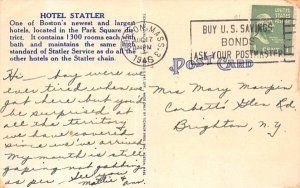 HOTEL STATLER
One of Boston's newest and largest
hotels, located in the Park Square dis-
trict. It contains 1300 rooms each with
bath and maintains the same high
standard of Statler Service as do all the
other hotels on the Statler chain.
BOSTON, MASS. 3
1946
BUY U.S. SAVINGS
BONDS
ASK YOUR POSTMASTER
POST CARD
Hi - boy were we
ever tired when we
got here but you'd
be surprised at
all the territory
we have covered
since we've arrived
My mouth is still
gaping not gabbing
as per. See you
Mattie Ann.
Mrs Mary Maupin
Corbetts Glen Rd
Brighton, N.Y